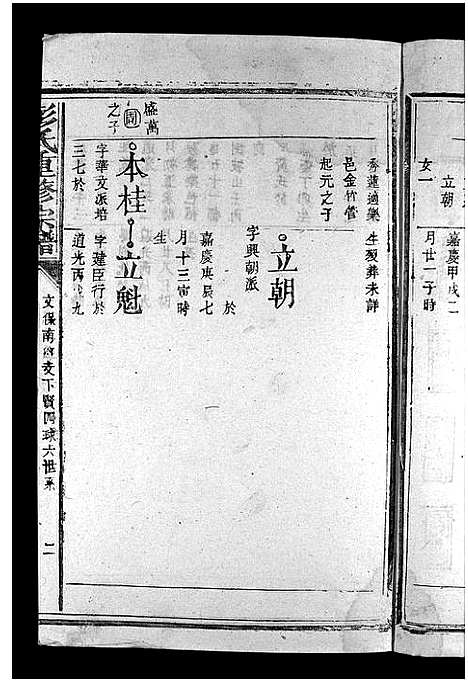 女一
立朝
嘉慶甲戌二
月廿一子時
秀蓮適欒
邑金竹管
起元之子
生歿葬未詳
立朝
字興朝派
於
嘉慶庚辰七
月十三寅時
生
盛萬
圖
之子
本桂
立魁
字華文派培
三七於
字建臣行於
道光丙戌九
彭氏重修宗譜
文保南 下賢四球六世系
二